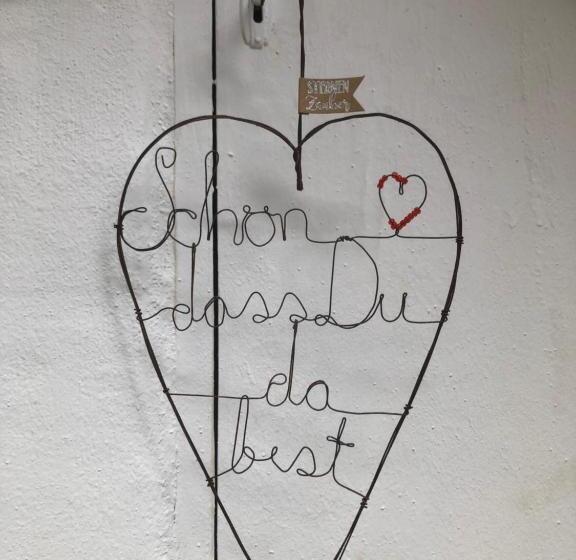 STERNEN
Zauber
Schön
dass Du
da
best